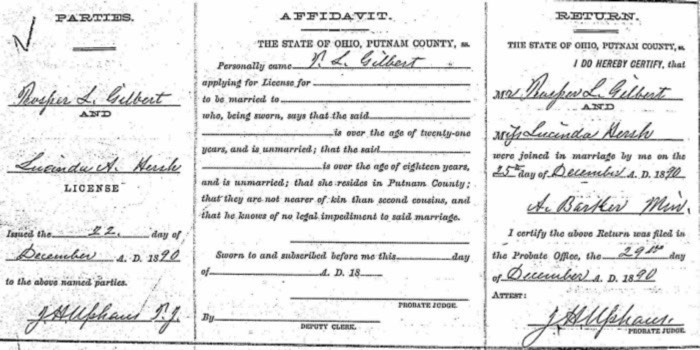 PARTIES.
Prosper L. Gilbert
AND
Lucinda A. Hersh
LICENSE
Issued the 22. day of
December A. D. 1890
to the above named parties.
J H Uphaus P. J.
AFFIDAVIT.
THE STATE OF OHIO, PUTNAM COUNTY, ss.
Personally came P. L. Gilbert
applying for License for
to be married to
who, being sworn, says that the said
is over the age of twenty-one
years, and is unmarried; that the said
is over the age of eighteen years,
and is unmarried; that she resides in Putnam County;
that they are not nearer of kin than second cousins, and
that he knows of no legal impediment to said marriage.
Sworn to and subscribed before me this day
of A. D. 18
PROBATE JUDGE.
By
DEPUTY CLERK.
RETURN.
THE STATE OF OHIO, PUTNAM COUNTY, ss.
I DO HEREBY CERTIFY, that
Mr Prosper L. Gilbert
AND
Miss Lucinda Hersh
were joined in marriage by me on the
25th day of December A. D. 1890
A. Barker Min.
I certify the above Return was filed in
the Probate Office, the 29th day
of December A. D. 1890
ATTEST:
J H Uphaus
PROBATE JUDGE.